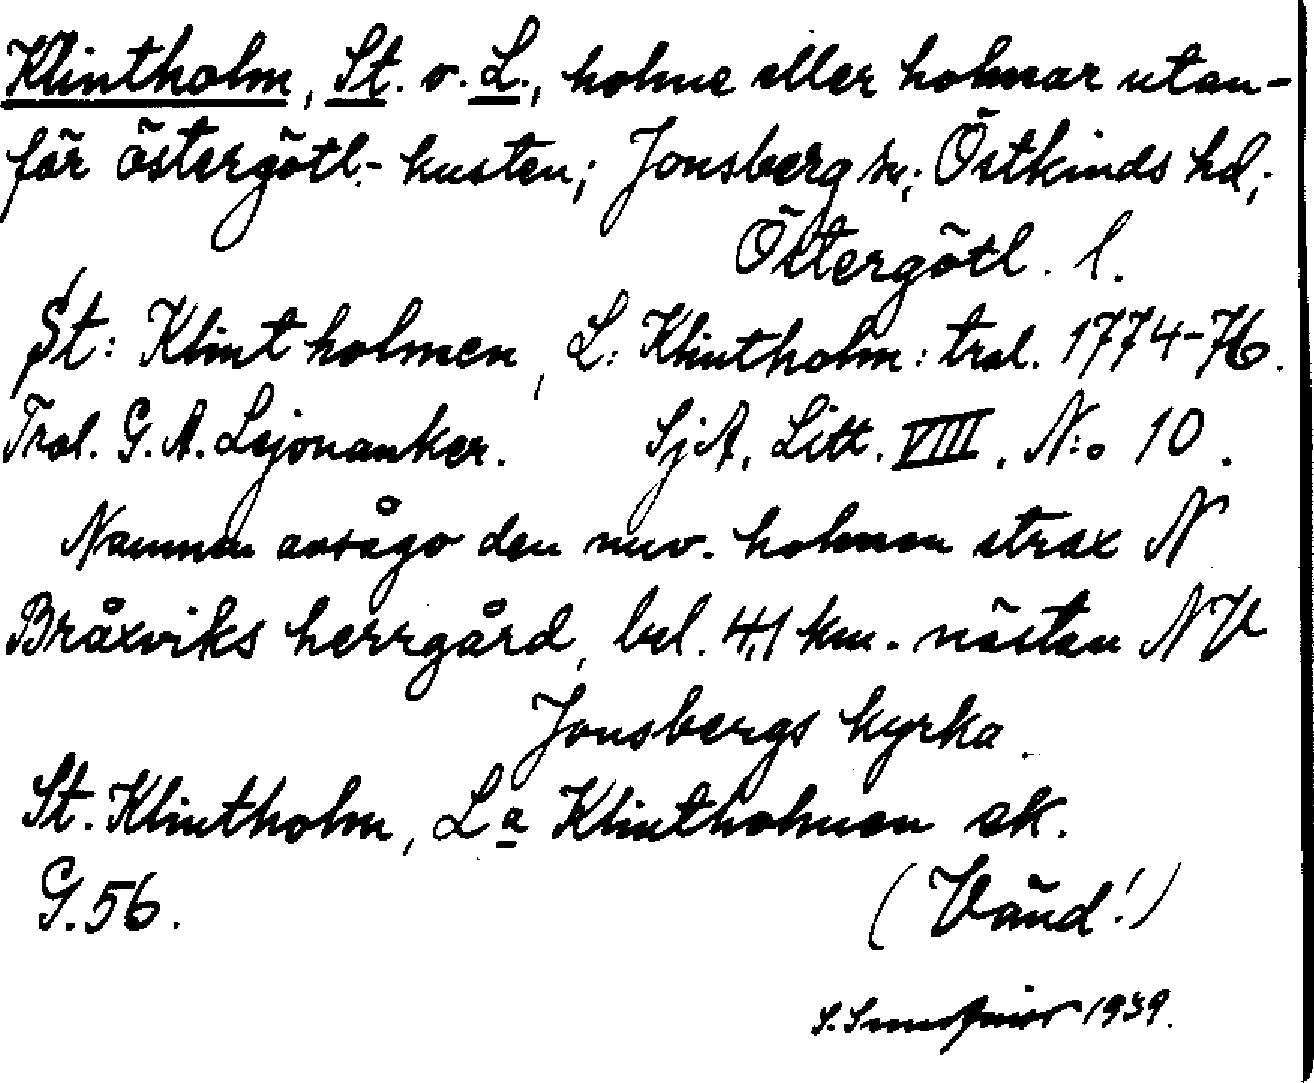 Klintholm, St. o. L., holme eller holmar utan-
för östergötl.- kusten; Jonsberg sn; Östkinds hd;
Östergötl. l.
St: Klint holmen, L: Klintholm: tral. 1774-76.
Tral. G. A. Lejonanker. SjA, Litt. VIII, N:o 10.
Namnen avsågo den nuv. holmen strax N
Bråxviks herrgård, bel. 4,1 km. nästan NV
Jonsbergs kyrka.
St. Klintholm, La Klintholmen sk.
G. 56. (Vänd!)
S. 1939.